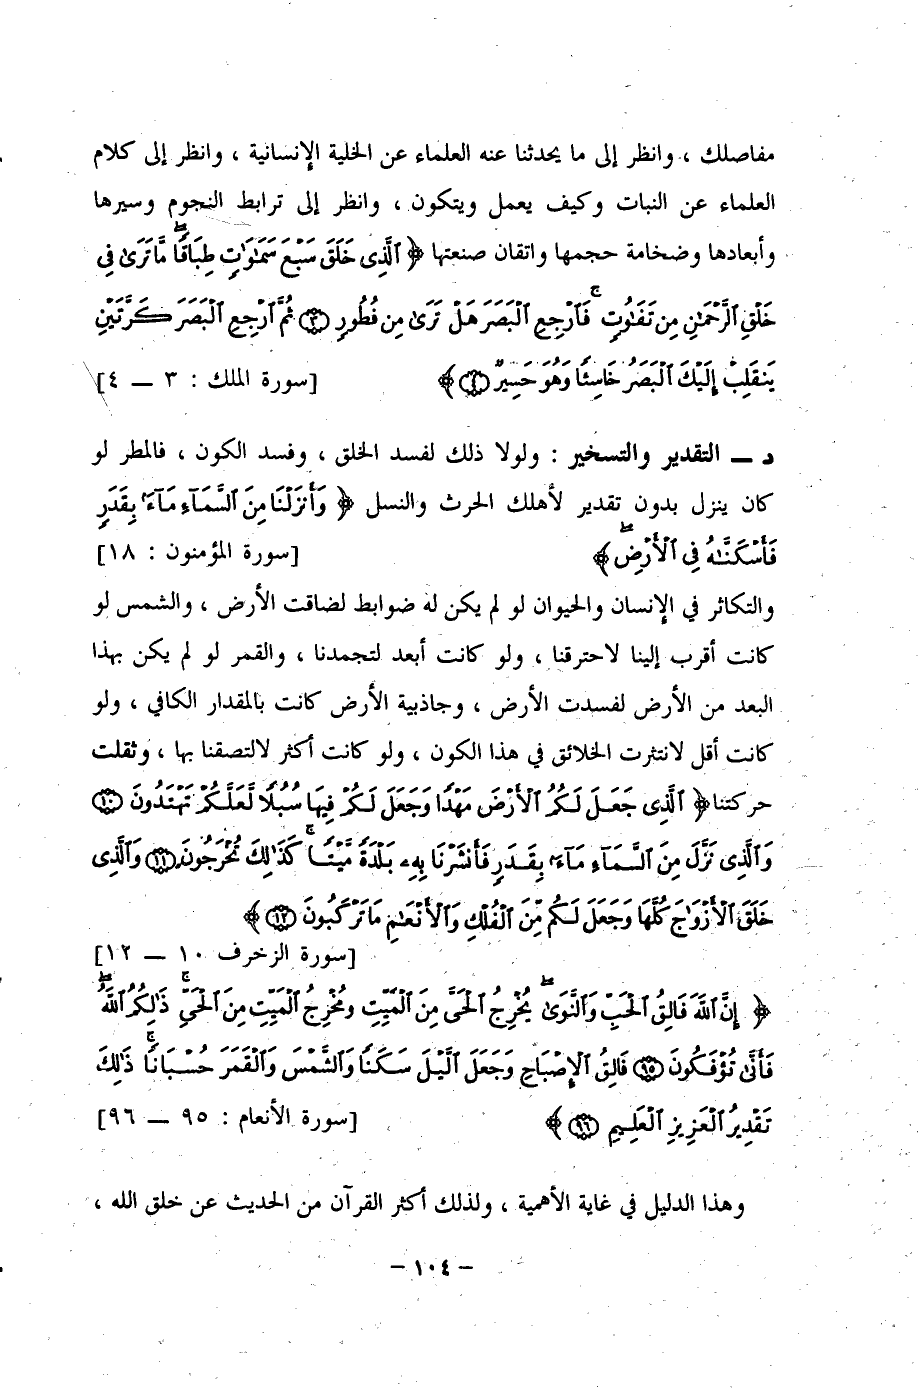 مفاصلك ، وانظر إلى ما يحدثنا عنه العلماء عن الخلية الإنسانية ، وانظر إلى كلام
العلماء عن النبات وكيف يعمل ويتكون ، وانظر إلى ترابط النجوم وسيرها
وأبعادها وضخامة حجمها واتقان صنعتها ﴿ ٱلَّذِى خَلَقَ سَبْعَ سَمَٰوَٰتٍ طِبَاقًا ۖ مَّا تَرَىٰ فِى
خَلْقِ ٱلرَّحْمَٰنِ مِن تَفَٰوُتٍ ۖ فَٱرْجِعِ ٱلْبَصَرَ هَلْ تَرَىٰ مِن فُطُورٍ ﴿٣﴾ ثُمَّ ٱرْجِعِ ٱلْبَصَرَ كَرَّتَيْنِ
يَنقَلِبْ إِلَيْكَ ٱلْبَصَرُ خَاسِئًا وَهُوَ حَسِيرٌ ﴿٤﴾ ﴾ [سورة الملك : ٣ — ٤]
د — التقدير والتسخير : ولولا ذلك لفسد الخلق ، وفسد الكون ، فالمطر لو
كان ينزل بدون تقدير لأهلك الحرث والنسل ﴿ وَأَنزَلْنَا مِنَ ٱلسَّمَآءِ مَآءًۢ بِقَدَرٍ
فَأَسْكَنَّٰهُ فِى ٱلْأَرْضِ ۖ ﴾ [سورة المؤمنون : ١٨]
والتكاثر في الإنسان والحيوان لو لم يكن له ضوابط لضاقت الأرض ، والشمس لو
كانت أقرب إلينا لاحترقنا ، ولو كانت أبعد لتجمدنا ، والقمر لو لم يكن بهذا
البعد من الأرض لفسدت الأرض ، وجاذبية الأرض كانت بالمقدار الكافي ، ولو
كانت أقل لانتثرت الخلائق في هذا الكون ، ولو كانت أكثر لالتصقنا بها ، وثقلت
حركتنا ﴿ ٱلَّذِى جَعَلَ لَكُمُ ٱلْأَرْضَ مَهْدًا وَجَعَلَ لَكُمْ فِيهَا سُبُلًا لَّعَلَّكُمْ تَهْتَدُونَ ﴿١٠﴾
وَٱلَّذِى نَزَّلَ مِنَ ٱلسَّمَآءِ مَآءًۢ بِقَدَرٍ فَأَنشَرْنَا بِهِۦ بَلْدَةً مَّيْتًا ۚ كَذَٰلِكَ تُخْرَجُونَ ﴿١١﴾ وَٱلَّذِى
خَلَقَ ٱلْأَزْوَٰجَ كُلَّهَا وَجَعَلَ لَكُم مِّنَ ٱلْفُلْكِ وَٱلْأَنْعَٰمِ مَا تَرْكَبُونَ ﴿١٢﴾ ﴾
[سورة الزخرف ١٠ — ١٢]
﴿ إِنَّ ٱللَّهَ فَالِقُ ٱلْحَبِّ وَٱلنَّوَىٰ ۖ يُخْرِجُ ٱلْحَىَّ مِنَ ٱلْمَيِّتِ وَمُخْرِجُ ٱلْمَيِّتِ مِنَ ٱلْحَىِّ ۚ ذَٰلِكُمُ ٱللَّهُ ۖ
فَأَنَّىٰ تُؤْفَكُونَ ﴿٩٥﴾ فَالِقُ ٱلْإِصْبَاحِ وَجَعَلَ ٱلَّيْلَ سَكَنًا وَٱلشَّمْسَ وَٱلْقَمَرَ حُسْبَانًا ۚ ذَٰلِكَ
تَقْدِيرُ ٱلْعَزِيزِ ٱلْعَلِيمِ ﴿٩٦﴾ ﴾ [سورة الأنعام : ٩٥ — ٩٦]
وهذا الدليل في غاية الأهمية ، ولذلك أكثر القرآن من الحديث عن خلق الله ،
- ١٠٤ -